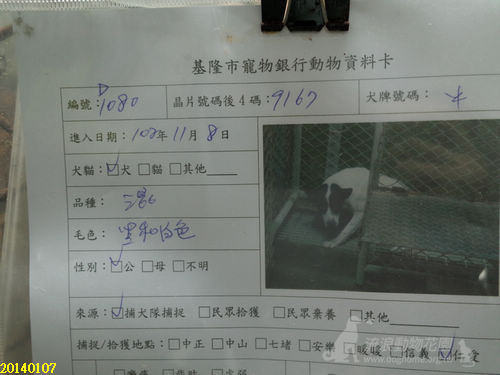 基隆市寵物銀行動物資料卡
編號:D1080 晶片號碼後4碼:9167 犬牌號碼:
進入日期:102年11月8日
犬貓:☑犬 □貓 □其他
品種:混
毛色:黑和白色
性別:☑公 □母 □不明
來源:☑捕犬隊捕捉 □民眾拾獲 □民眾棄養 □其他
捕捉/拾獲地點:□中正 □中山 □七堵 □安樂 □暖暖 □信義 ☑仁愛
流浪動物花園
http://www.doghome.org.tw
20140107